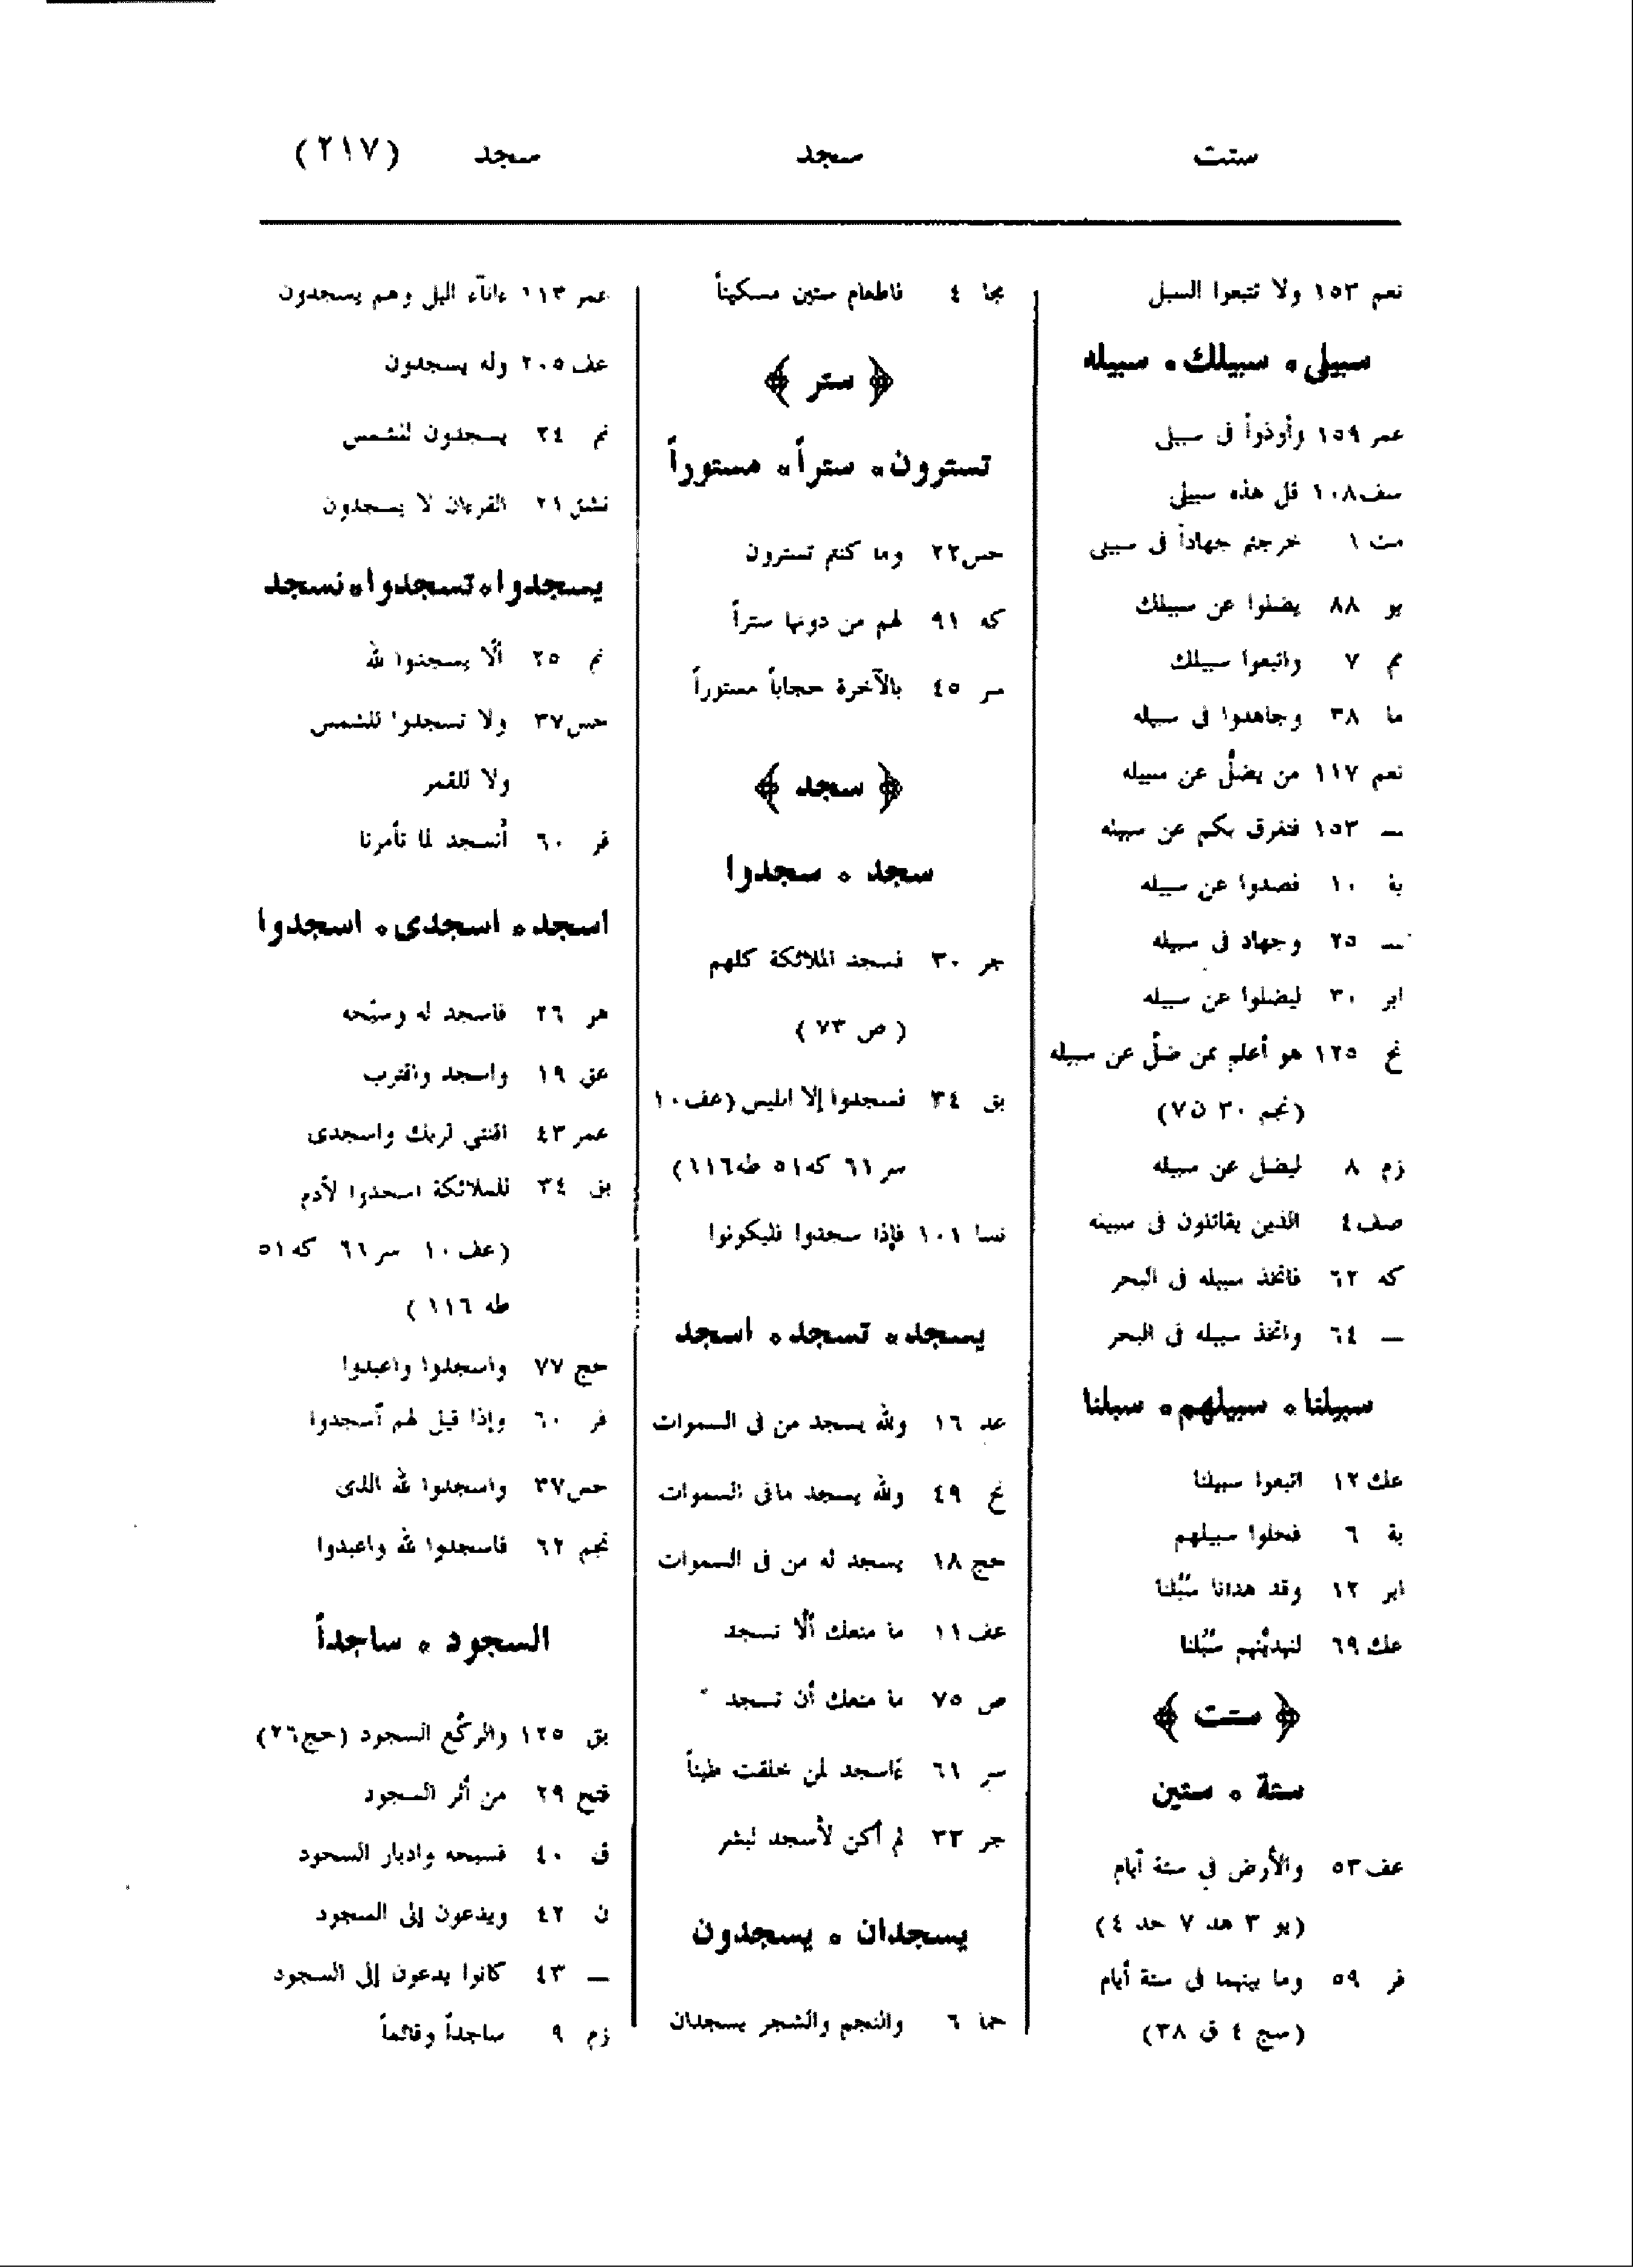 ستت سجد سجد (٢١٧)
نعم ١٥٣ ولا تتبعوا السبل
سبيلى ، سبيلك ، سبيله
عمر ١٥٩ وأوذوا فى سبيلى
سف ١٠٨ قل هذه سبيلى
مت ١ خرجتم جهاداً فى سبيلى
يو ٨٨ يضلوا عن سبيلك
مم ٧ واتبعوا سبيلك
ما ٣٨ وجاهدوا فى سبيله
نعم ١١٧ من يضلّ عن سبيله
— ١٥٣ فتفرق بكم عن سبيله
بة ١٠ فصدوا عن سبيله
— ٢٥ وجهاد فى سبيله
ابر ٣٠ ليضلوا عن سبيله
نح ١٢٥ هو أعلم بمن ضلّ عن سبيله
(نجم ٣٠ ن ٧)
زم ٨ ليضل عن سبيله
صف ٤ الذين يقاتلون فى سبيله
كه ٦٢ فاتخذ سبيله فى البحر
— ٦٤ واتخذ سبيله فى البحر
سبيلنا ، سبيلهم ، سبلنا
عك ١٢ اتبعوا سبيلنا
بة ٦ فخلوا سبيلهم
ابر ١٢ وقد هدانا سُبُلنا
عك ٦٩ لنهدينّهم سُبُلنا
﴿ ستت ﴾
ستة ، ستين
عف ٥٣ والأرض فى ستة أيام
(يو ٣ هد ٧ حد ٤)
فر ٥٩ وما بينهما فى ستة أيام
(سج ٤ ق ٣٨)
بجا ٤ فاطعام ستين مسكيناً
﴿ ستر ﴾
تسترون ، ستراً ، مستوراً
حس ٢٢ وما كنتم تسترون
كه ٩١ لهم من دونها ستراً
سر ٤٥ بالآخرة حجاباً مستوراً
﴿ سجد ﴾
سجد ، سجدوا
جر ٣٠ فسجد الملائكة كلهم
(ص ٧٣)
بق ٣٤ فسجدوا إلا ابليس (عف ١٠
سر ٦١ كه ٥١ طه ١١٦)
نسا ١٠١ فإذا سجدوا فليكونوا
يسجد ، تسجد ، اسجد
عد ١٦ ولله يسجد من فى السموات
نح ٤٩ ولله يسجد مافى السموات
حج ١٨ يسجد له من فى السموات
عف ١١ ما منعك ألّا تسجد
ص ٧٥ ما منعك أن تسجد
سر ٦١ ءأسجد لمن خلقت طيناً
جر ٣٣ لم أكن لأسجد لبشر
يسجدان ، يسجدون
حما ٦ والنجم والشجر يسجدان
عمر ١١٣ ءانآء اليل وهم يسجدون
عف ٢٠٥ وله يسجدون
نم ٢٤ يسجدون للشمس
نشق ٢١ القرءان لا يسجدون
يسجدوا ، تسجدوا ، نسجد
نم ٢٥ ألّا يسجدوا لله
حس ٣٧ ولا تسجدوا للشمس
ولا للقمر
فر ٦٠ أنسجد لما تأمرنا
اسجد ، اسجدى ، اسجدوا
هر ٢٦ فاسجد له وسبّحه
عق ١٩ واسجد واقترب
عمر ٤٣ اقنتي لربك واسجدى
بق ٣٤ للملائكة اسجدوا لأدم
(عف ١٠ سر ٦١ كه ٥١
طه ١١٦)
حج ٧٧ واسجدوا واعبدوا
فر ٦٠ وإذا قيل لهم أسجدوا
حس ٣٧ واسجدوا لله الذى
نجم ٦٢ فاسجدوا لله واعبدوا
السجود ، ساجداً
بق ١٢٥ والركّع السجود (حج ٢٦)
فتح ٢٩ من أثر السجود
ق ٤٠ فسبحه وادبار السجود
ن ٤٢ ويدعون إلى السجود
— ٤٣ كانوا يدعون إلى السجود
زم ٩ ساجداً وقائماً